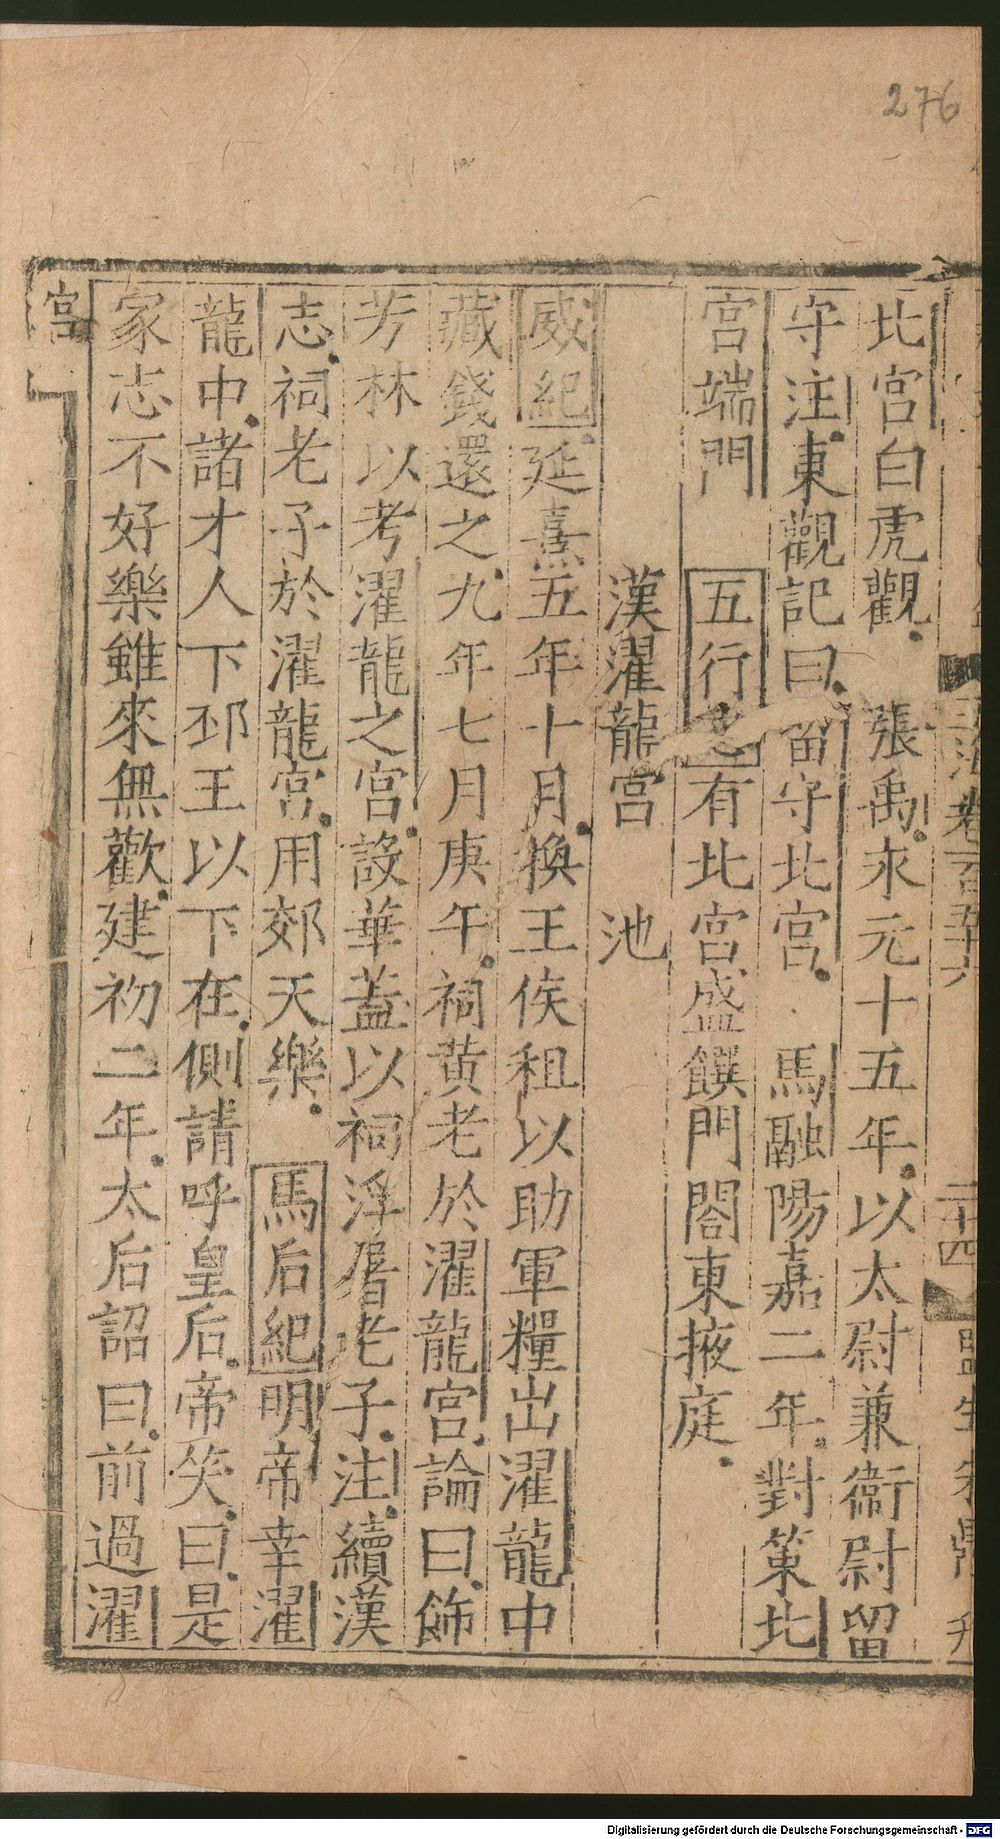 276
北宮白虎觀 張禹永元十五年以太尉兼衞尉留
守注東觀記曰留守北宮 馬融陽嘉二年對策北
宮端門 五行志有北宮盛饌門閤東掖庭
漢濯龍宮 池
威紀延熹五年十月換王侯租以助軍糧出濯龍中
藏錢還之九年七月庚午祠黄老於濯龍宮論曰飾
芳林以考濯龍之宮設華蓋以祠浮屠老子注續漢
志祠老子於濯龍宮用郊天樂 馬后紀明帝幸濯
龍中諸才人下邳王以下在側請呼皇后帝笑曰是
家志不好樂雖來無歡建初二年太后詔曰前過濯
宮
玉海卷一百五十六
二十四
Digitalisierung gefördert durch die Deutsche Forschungsgemeinschaft - DFG